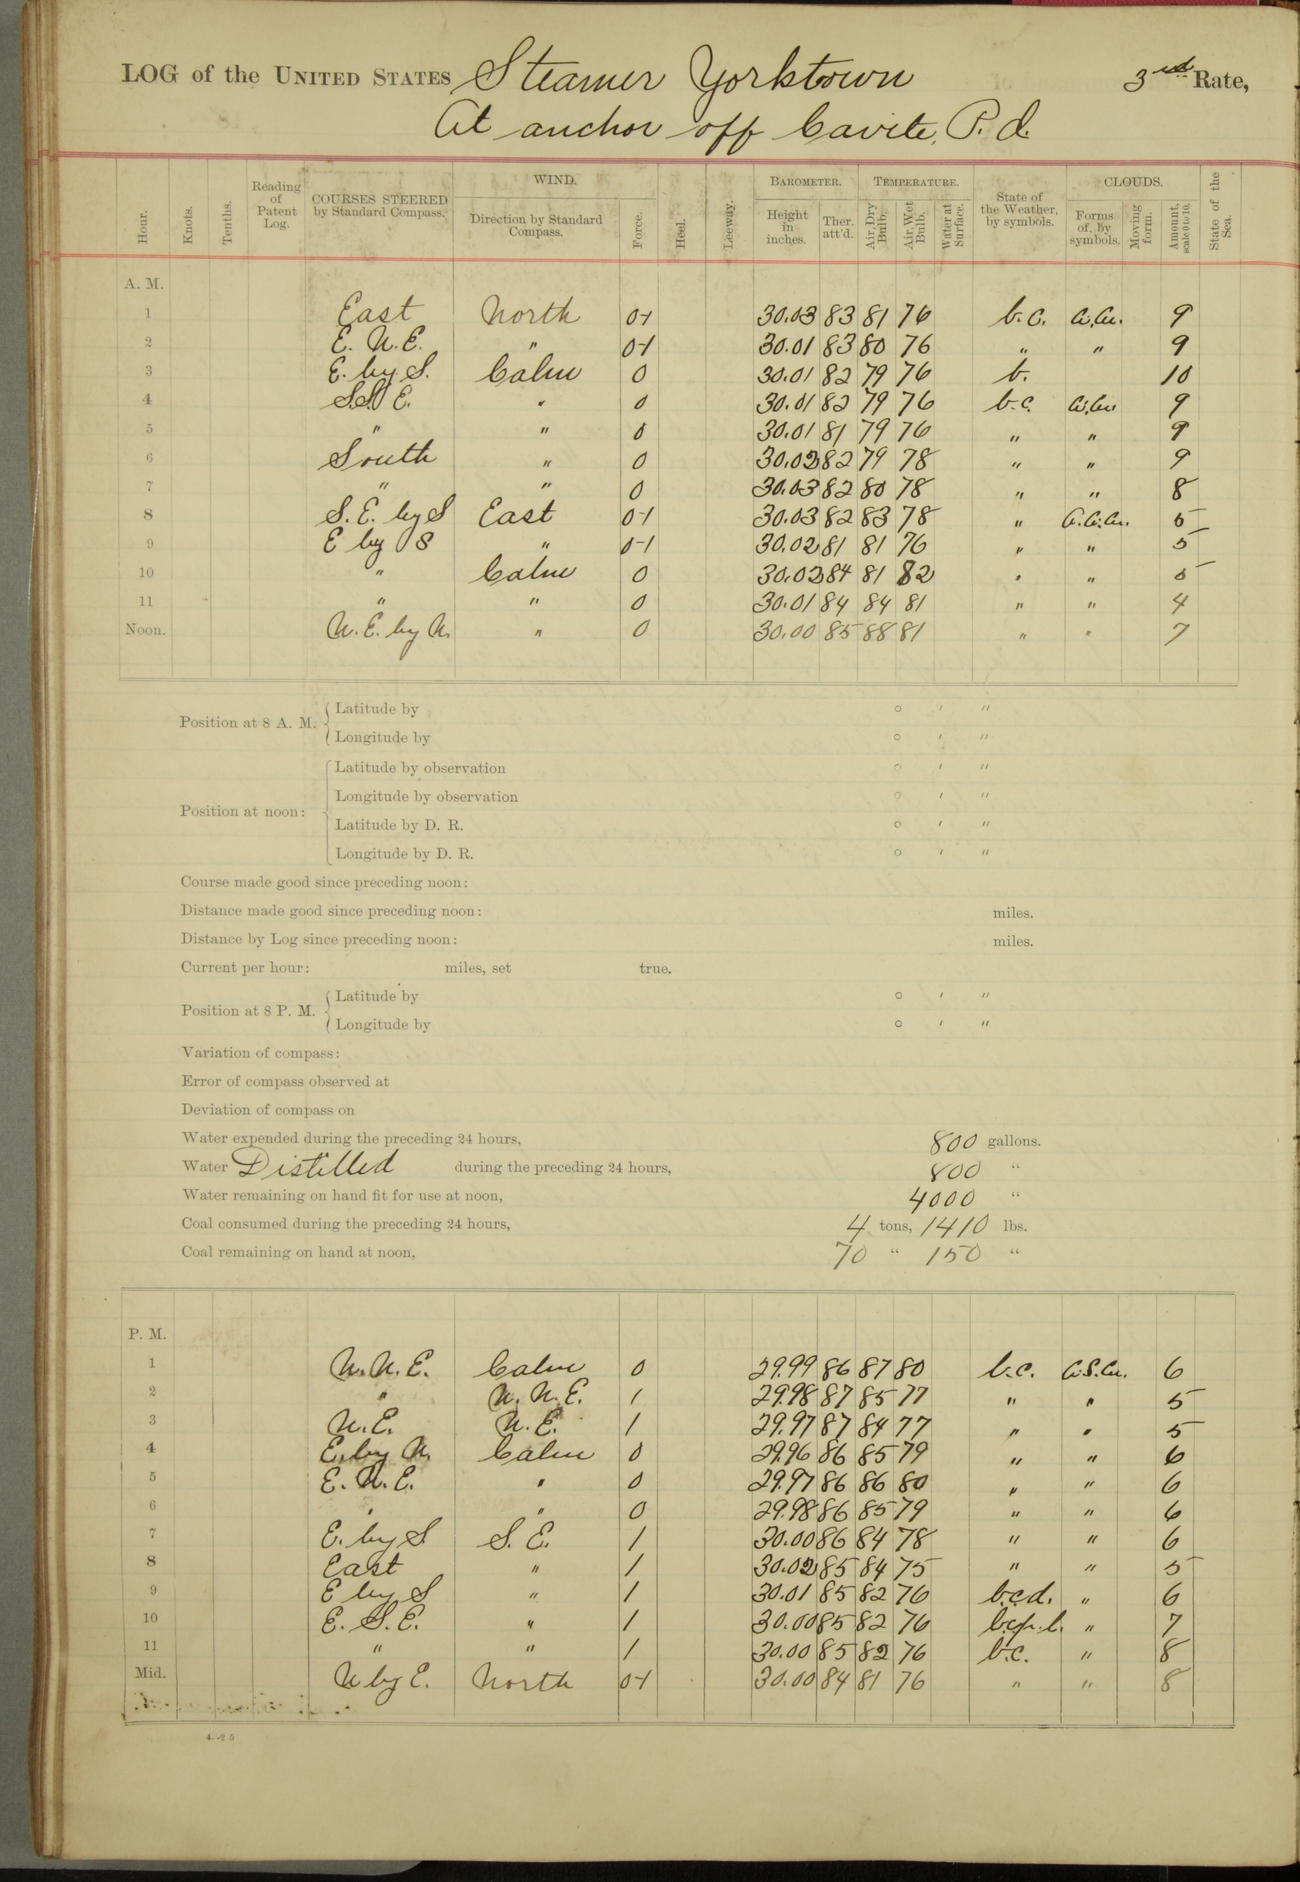 LOG of the UNITED STATES Steamer Yorktown 3rd Rate,
At anchor off Cavite, P. I.
Hour. Knots. Tenths. Reading of Patent Log. COURSES STEERED by Standard Compass. WIND. Direction by Standard Compass. Force. Heel. Leeway. BAROMETER. Height in inches. Ther. att'd. TEMPERATURE. Air, Dry Bulb. Air, Wet Bulb. Water at Surface. State of the Weather, by symbols. CLOUDS. Forms of, by symbols. Moving form. Amount, scale 0 to 10. State of the Sea.
A. M.
1 East North 0-1 30.03 83 81 76 b.c. Ci.Cu. 9
2 E. N.E. " 0-1 30.01 83 80 76 " " 9
3 E. by S. Calm 0 30.01 82 79 76 b. 10
4 S.S.E. " 0 30.01 82 79 76 b.c. Ci.Cu. 9
5 " " 0 30.01 81 79 76 " " 9
6 South " 0 30.02 82 79 78 " " 9
7 " " 0 30.03 82 80 78 " " 8
8 S. E. by S East 0-1 30.03 82 83 78 " 5
9 E by S " 0-1 30.02 81 81 76 " " 5
10 " Calm 0 30.02 84 81 82 " " 5
11 " " 0 30.01 84 84 81 " " 4
Noon. N. E. by N. " 0 30.00 85 88 81 " " 7
Position at 8 A. M. Latitude by ° ′ ″
Longitude by ° ′ ″
Position at noon: Latitude by observation ° ′ ″
Longitude by observation ° ′ ″
Latitude by D. R. ° ′ ″
Longitude by D. R. ° ′ ″
Course made good since preceding noon:
Distance made good since preceding noon: miles.
Distance by Log since preceding noon: miles.
Current per hour: miles, set true.
Position at 8 P. M. Latitude by ° ′ ″
Longitude by ° ′ ″
Variation of compass:
Error of compass observed at
Deviation of compass on
Water expended during the preceding 24 hours, 800 gallons.
Water Distilled during the preceding 24 hours, 800 "
Water remaining on hand fit for use at noon, 4000 "
Coal consumed during the preceding 24 hours, 4 tons, 1410 lbs.
Coal remaining on hand at noon, 70 " 150 "
P. M.
1 N.N.E. Calm 0 29.99 86 87 80 b.c. Ci.S.Cu. 6
2 " N. N. E. 1 29.98 87 85 77 " " 5
3 N.E. N.E. 1 29.97 87 84 77 " " 5
4 E. by N. Calm 0 29.96 86 85 79 " " 6
5 E. N.E. " 0 29.97 86 86 80 " " 6
6 " " 0 29.98 86 85 79 " " 6
7 E. by S. S. E. 1 30.00 86 84 78 " " 6
8 East " 1 30.02 85 84 75 " " 5
9 E by S " 1 30.01 85 82 76 b.c.d. " 6
10 E. S.E. " 1 30.00 85 82 76 " 7
11 " " 1 30.00 85 82 76 b.c. " 8
Mid. N by E. North 0-1 30.00 84 81 76 " " 8
4--25